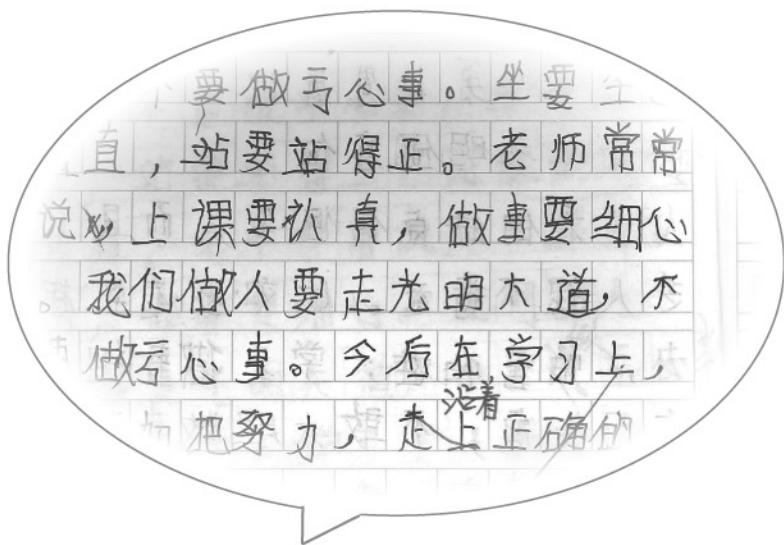 要做亏心事。坐要坐
直，站要站得正。老师常常
说，上课要认真，做事要细心
。我们做人要走光明大道，不
做亏心事。今后在学习上，
把努力，走上正确的
沿着